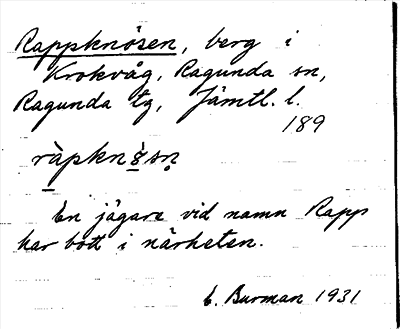 Rappknösen, berg i
Krokvåg, Ragunda sn,
Ragunda tg, Jämtl. l.
189
En jägare vid namn Rapp
har bott i närheten.
E. Burman 1931